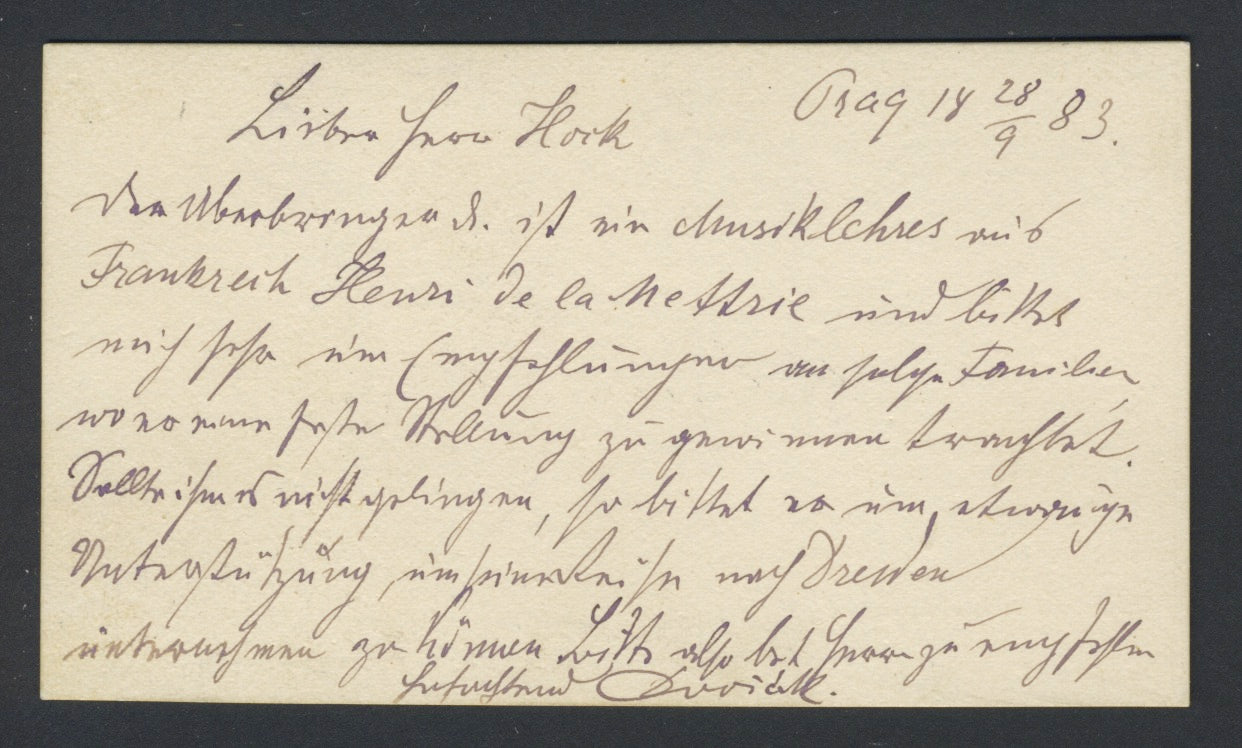 Prag 18 28/9 83.
Lieber Herr Hock
Der Überbringer d. ist ein Musiklehrer aus
Frankreich Henri de la Mettrie und bittet
mich sehr um Empfehlungen an solche Familien,
wo er eine feste Stellung zu gewinnen trachtet.
Sollte ihm es nicht gelingen, so bittet er um etwaige
Unterstützung, um seine Reise nach Dresden
unternehmen zu können Bitte also bet. Herrn zu empfehlen
Hochachtend Dvořák.